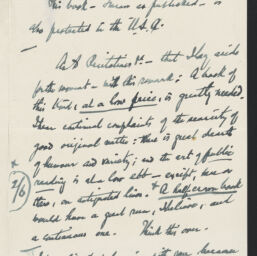 This book – unless so published – is
also protected in the U.S.A.
As to Recitations &c – that I lay aside
for the moment – with this remark: A book of
this kind, at a low price, is greatly needed.
I hear continual complaints of the scarcity of
good original matter: there is great dearth
of humour and variety; and the art of public
reading is at a low ebb – except, here or
there, on antiquated lines. * A half-crown book
would have a great run, I believe; and
a continuous one. Think this over.
* 2/6
with your